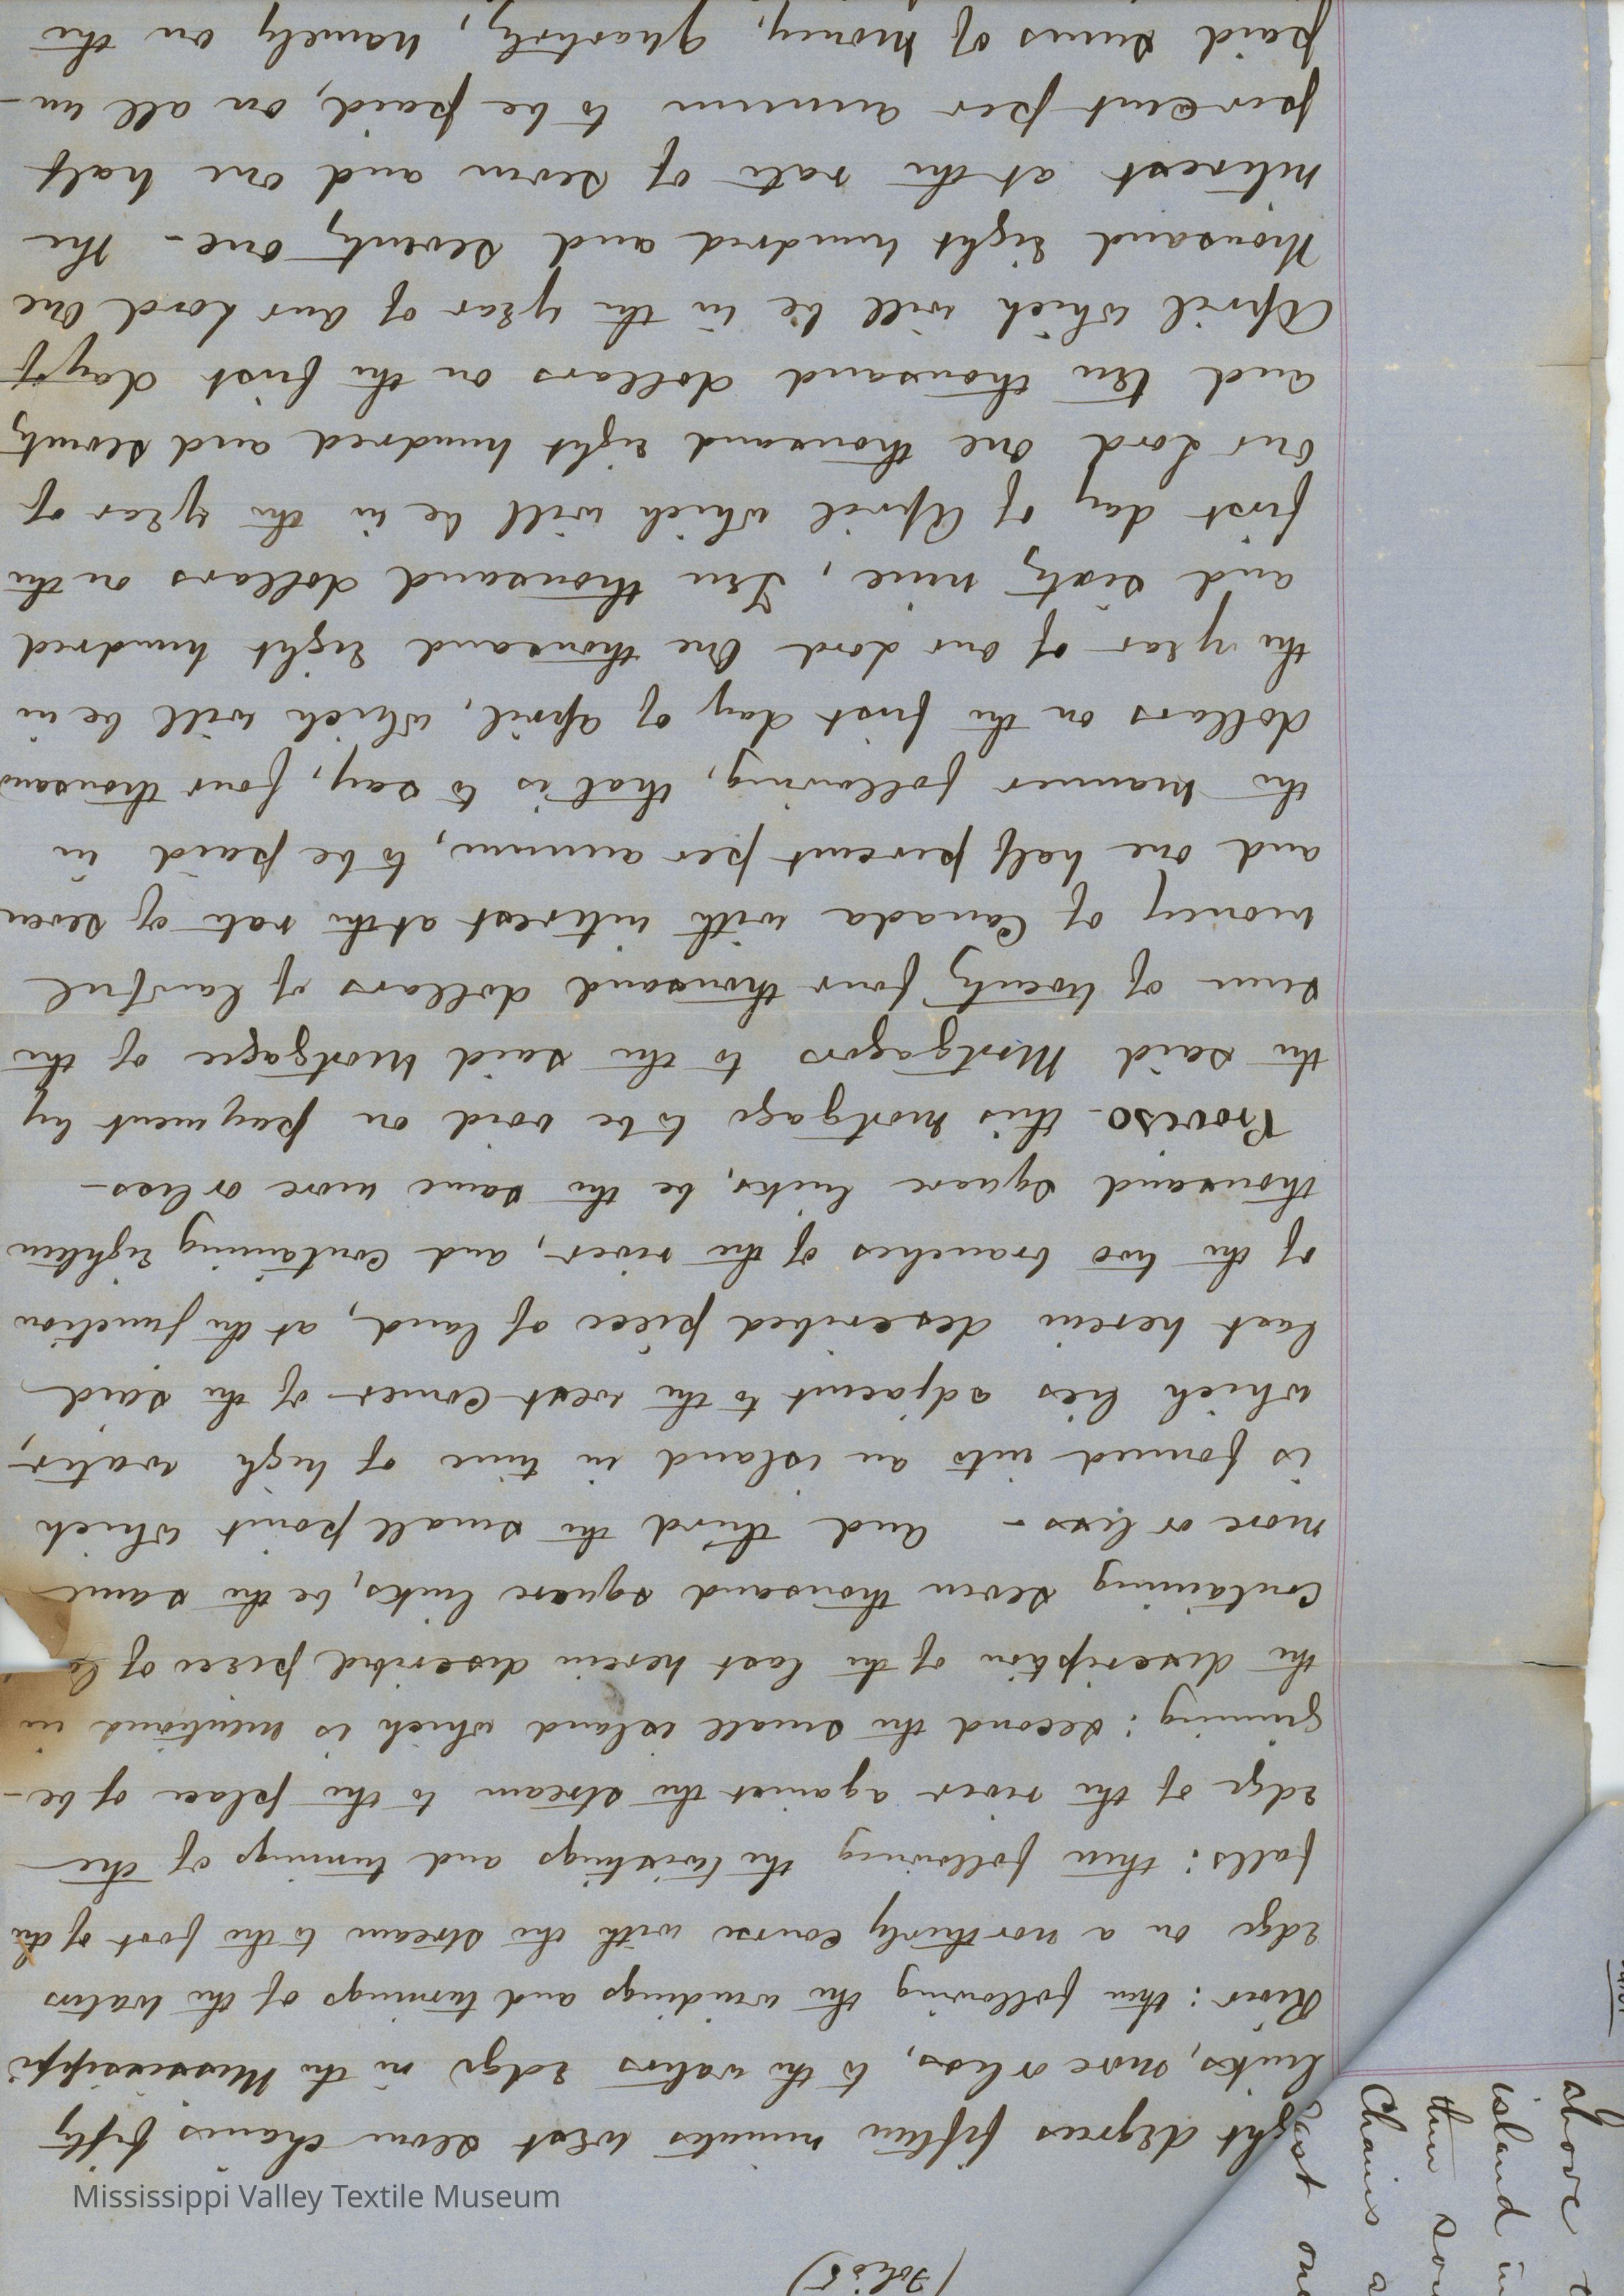 (Folio 5)
ght degrees fifteen minutes West seven chains fifty
links, more or less, to the waters edge in the Mississippi
River: then following the windings and turnings of the waters
edge on a northerly course with the stream to the foot of the
falls: then following the twistings and turnings of the
edge of the river against the stream to the place of be-
ginning: second the small island which is mentioned in
the description of the last herein described piece of
containing seven thousand square links, be the same
more or less - and third the small point which
is formed into an island in time of high water,
which lies adjacent to the west corner of the said
last herein described piece of land, at the junction
of the two branches of the river, and containing eighteen
thousand square links, be the same more or less -
Proviso - this mortgage to be void on payment by
the said Mortgagors to the said Mortgagee of the
sum of twenty four thousand dollars of lawful
money of Canada with interest at the rate of seven
and one half percent per annum, to be paid in
the manner following, that is to say, four thousand
dollars on the first day of April, which will be in
the year of our Lord One thousand Eight hundred
and sixty nine, Ten thousand dollars on the
first day of April which will be in the year of
Our Lord One thousand eight hundred and seventy
and ten thousand dollars on the first day of
April which will be in the year of our Lord One
thousand Eight hundred and seventy one - The
interest at the rate of seven and one half
percent per annum to be paid, on all un-
paid sums of money, quarterly, namely on the
above
island in
then sou
Chains a
East one
Mississippi Valley Textile Museum